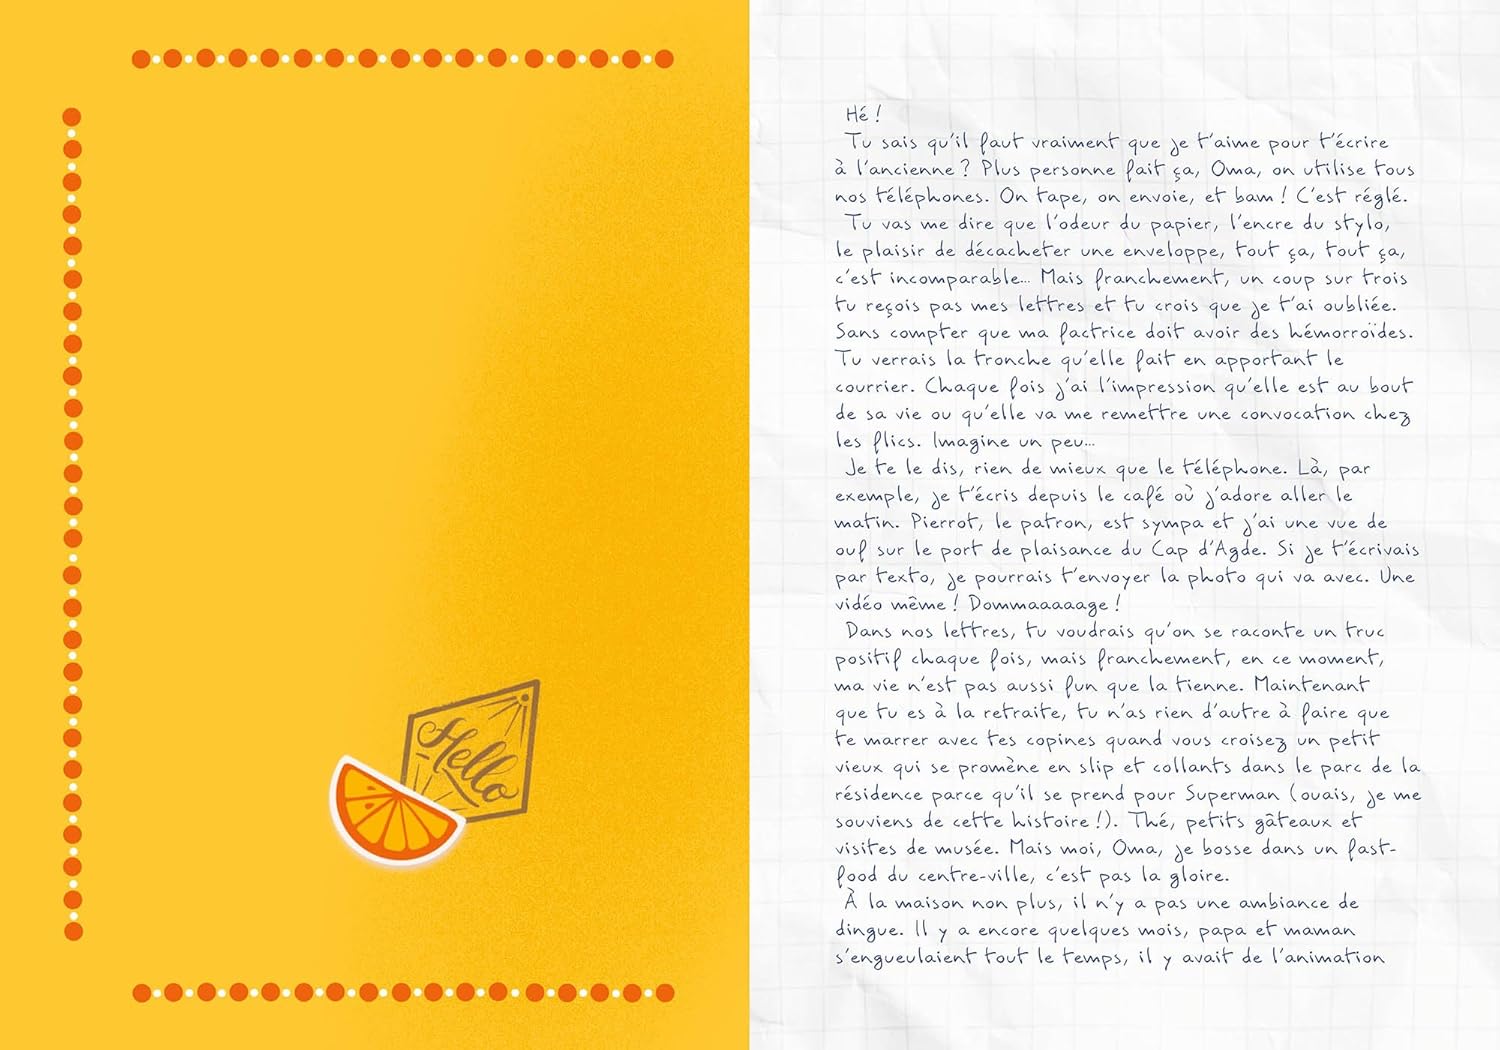 Hello
Hé !
Tu sais qu'il faut vraiment que je t'aime pour t'écrire
à l'ancienne ? Plus personne fait ça, Oma, on utilise tous
nos téléphones. On tape, on envoie, et bam ! C'est réglé.
Tu vas me dire que l'odeur du papier, l'encre du stylo,
le plaisir de décacheter une enveloppe, tout ça, tout ça,
c'est incomparable… Mais franchement, un coup sur trois
tu reçois pas mes lettres et tu crois que je t'ai oubliée.
Sans compter que ma factrice doit avoir des hémorroïdes.
Tu verrais la tronche qu'elle fait en apportant le
courrier. Chaque fois j'ai l'impression qu'elle est au bout
de sa vie ou qu'elle va me remettre une convocation chez
les flics. Imagine un peu…
Je te le dis, rien de mieux que le téléphone. Là, par
exemple, je t'écris depuis le café où j'adore aller le
matin. Pierrot, le patron, est sympa et j'ai une vue de
ouf sur le port de plaisance du Cap d'Agde. Si je t'écrivais
par texto, je pourrais t'envoyer la photo qui va avec. Une
vidéo même ! Dommaaaaage !
Dans nos lettres, tu voudrais qu'on se raconte un truc
positif chaque fois, mais franchement, en ce moment,
ma vie n'est pas aussi fun que la tienne. Maintenant
que tu es à la retraite, tu n'as rien d'autre à faire que
te marrer avec tes copines quand vous croisez un petit
vieux qui se promène en slip et collants dans le parc de la
résidence parce qu'il se prend pour Superman (ouais, je me
souviens de cette histoire !). Thé, petits gâteaux et
visites de musée. Mais moi, Oma, je bosse dans un fast-
food du centre-ville, c'est pas la gloire.
À la maison non plus, il n'y a pas une ambiance de
dingue. Il y a encore quelques mois, papa et maman
s'engueulaient tout le temps, il y avait de l'animation